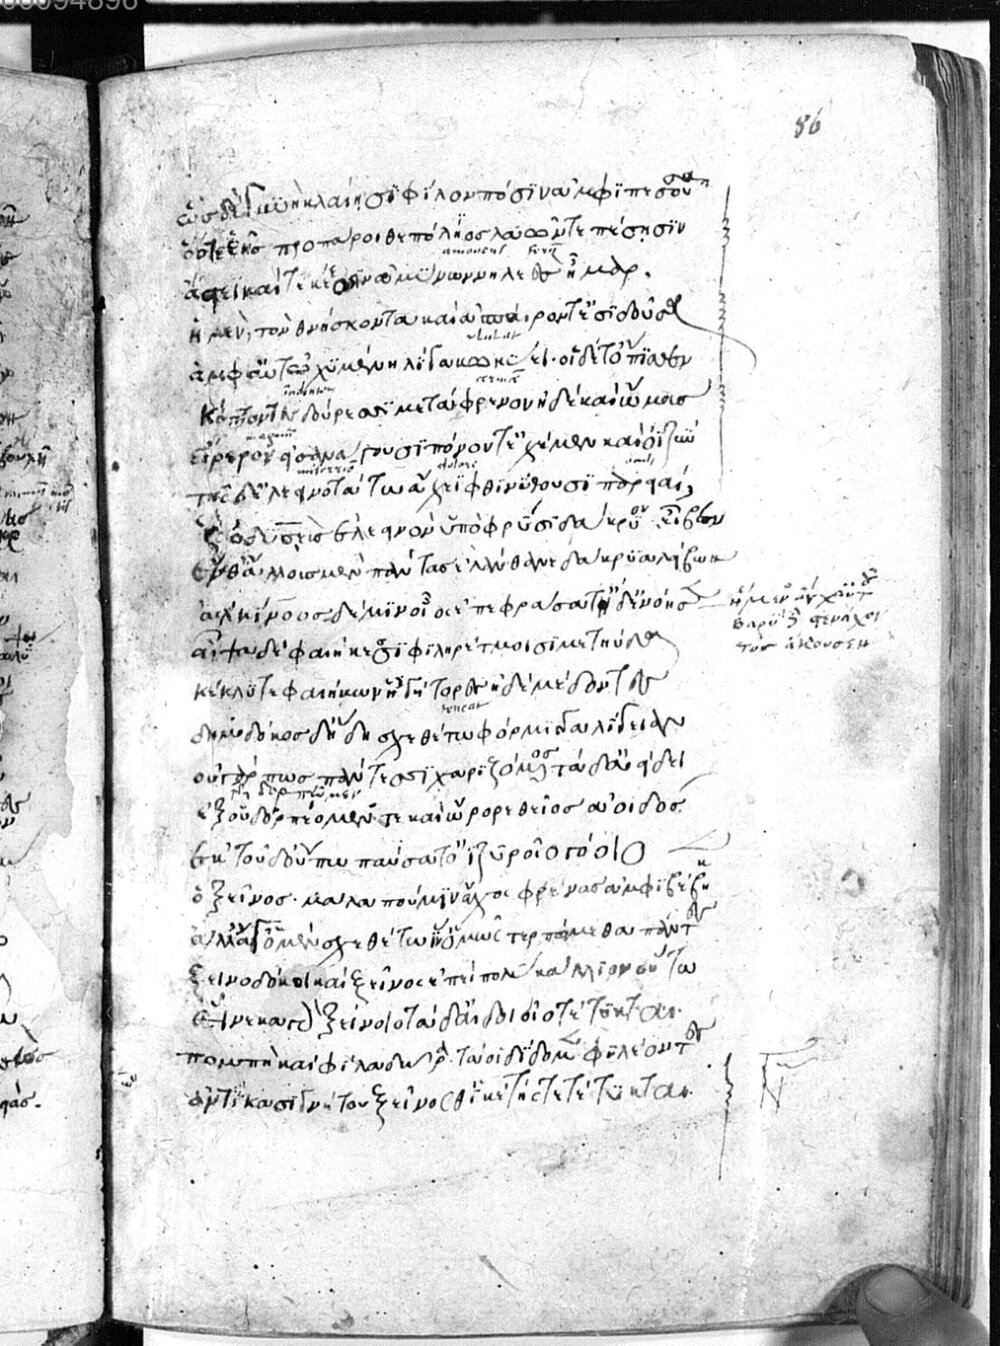 86
ὡς δὲ γυνὴ κλαίῃσι φίλον πόσιν ἀμφιπεσοῦσα
ὅς τε ἑῆς πρόπαροιθε πόληος λαῶν τε πέσῃσιν
ἄστεϊ καὶ τεκέεσσιν ἀμύνων νηλεὲς ἦμαρ.
ἡ μὲν, τὸν θνήσκοντα καὶ ἀσπαίροντ' ἐσιδοῦσα
ἀμφ' αὐτῷ χυμένη λίγα κωκύει· οἱ δέ τ' ὄπισθεν
κόπτοντες δούρεσσι μετάφρενον ἠδὲ καὶ ὤμους
εἴρερον εἰσανάγουσι πόνον τ' ἐχέμεν καὶ ὀϊζὺν
τῆς δ' ἐλεεινοτάτῳ ἄχεϊ φθινύθουσι παρειαί,
ὣς ὀδυσεὺς ἐλεεινὸν ὑπ' ὀφρύσι δάκρυον εἶβεν
ἔνθ' ἄλλους μὲν πάντας ἐλάνθανε δάκρυα λείβων
ἀλκίνοος δέ μιν οἶος ἐπεφράσατ' ἠδ' ἐνόησεν
ἥμενος ἄγχ' αὐτοῦ
βαρὺ δὲ στενάχοντος ἄκουσεν
αἶψα δὲ φαιήκεσσι φιληρέτμοισι μετηύδα
κέκλυτε φαιήκων ἡγήτορες ἠδὲ μέδοντες
δημόδοκος δ' ἤδη σχεθέτω φόρμιγγα λίγειαν
οὐ γάρ πως πάντεσσι χαριζόμενος τάδ' ἀείδει
ἐξ οὗ δορπέομέν τε καὶ ὤρορε θεῖος ἀοιδός
ἐκ τοῦδ' οὔπω παύσατ' ὀϊζυροῖο γόοιο
ὁ ξεῖνος. μάλα πού μιν ἄχος φρένας ἀμφιβέβηκεν
ἀλλ' ἄγ' ὁ μὲν σχεθέτω ἵν' ὁμῶς τερπώμεθα πάντες
ξεινοδόκοι καὶ ξεῖνος ἐπεὶ πολὺ κάλλιον οὕτω
εἵνεκα γὰρ ξείνοιο τάδ' αἰδοίοιο τέτυκται.
πομπὴ καὶ φίλα δῶρα τά οἱ δίδομεν φιλέοντες
ἀντὶ κασιγνήτου ξεῖνός θ' ἱκέτης τε τέτυκται.